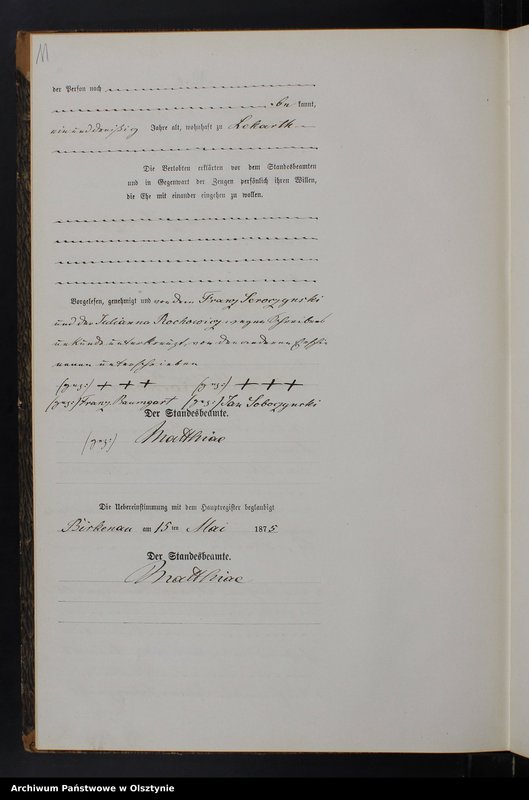 11
der Person nach
be kannt,
ein und dreißig Jahre alt, wohnhaft zu Lekarth
Die Verlobten erklärten vor dem Standesbeamten
und in Gegenwart der Zeugen persönlich ihren Willen,
die Ehe mit einander eingehen zu wollen.
Vorgelesen, genehmigt und von dem Franz
und der Julianna Rochowicz wegen Schreibens
unkunde unterkreuzt, von den anderen Erschie
nenen unterschrieben
(gez:) + + + (gez:) + + +
(gez:) Franz Baumgart (gez:) Jan Soboczynski
Der Standesbeamte.
(gez:) Matthiae
Die Uebereinstimmung mit dem Hauptregister beglaubigt
Birkenau am 15 ten Mai 1875
Der Standesbeamte.
Matthiae
Archiwum Państwowe w Olsztynie